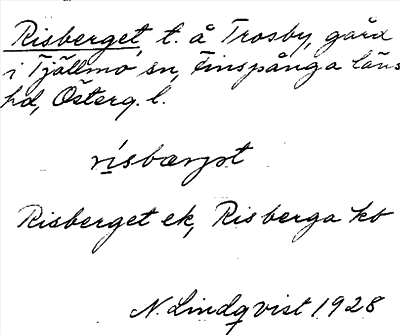 Risberget, t. å Trosby, gård
i Tjällmo sn, Finspånga läns
hd, Österg. l.
rísbærjət
Risberget ek, Risberga kb
N. Lindqvist 1928